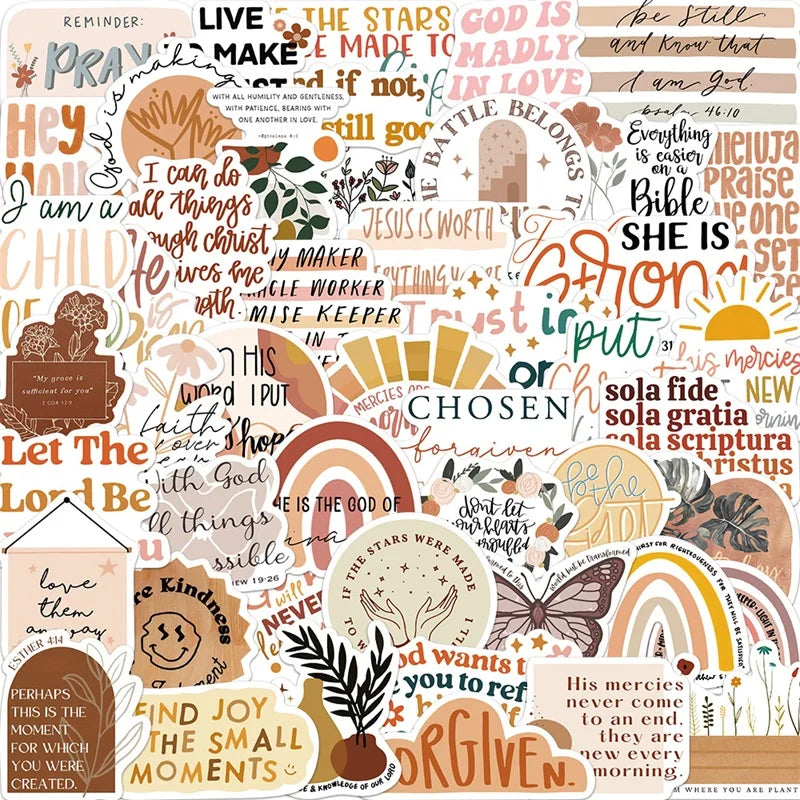 REMINDER:
PRAY
LIVE
TO MAKE
IF THE STARS
RE MADE TO
d if not,
still good
GOD IS
MADLY
IN LOVE
be still
and know that
I am God.
psalm 46:10
Hey
God is making
WITH ALL HUMILITY AND GENTLENESS,
WITH PATIENCE, BEARING WITH
ONE ANOTHER IN LOVE.
-Ephesians 4:2
THE BATTLE BELONGS TO
Everything
is easier
on a
Bible
PRAISE
THE ONE
SET
I am a
CHILD
OF
I can do
all things
ough christ
ives me
gth.
He is
JESUS IS WORTH
EVERYTHING
AY MAKER
RACLE WORKER
MISE KEEPER
IN T
SHE IS
Strong
31
Trust in
or
put
his mercies
NEW
"My grace is
sufficient for you"
2 COR 12:9
IN HIS
word I PUT
hope
MERCIES ARE
CHOSEN
forgiven
sola fide
sola gratia
sola scriptura
christus
Let The
Lord Be
faith
over
With God
all things
possible
HEW 19:26
HE IS THE GOD OF
don't let
your hearts
troubled
be the
love
them
anyway
re Kindness
I will
NEVER
IF THE STARS WERE MADE
TO W
ILL I
would but be transformed
FOR RIGHTEOUSNESS FOR THEY WILL BE SATISFIED
ESTHER 4:14
PERHAPS
THIS IS THE
MOMENT
FOR WHICH
YOU WERE
CREATED.
FIND JOY
THE SMALL
MOMENTS
E & KNOWLEDGE OF OUR LORD
od wants t
you to ref
ORGIVEN.
His mercies
never come
to an end.
they are
new every
morning.
M WHERE YOU ARE PLANT